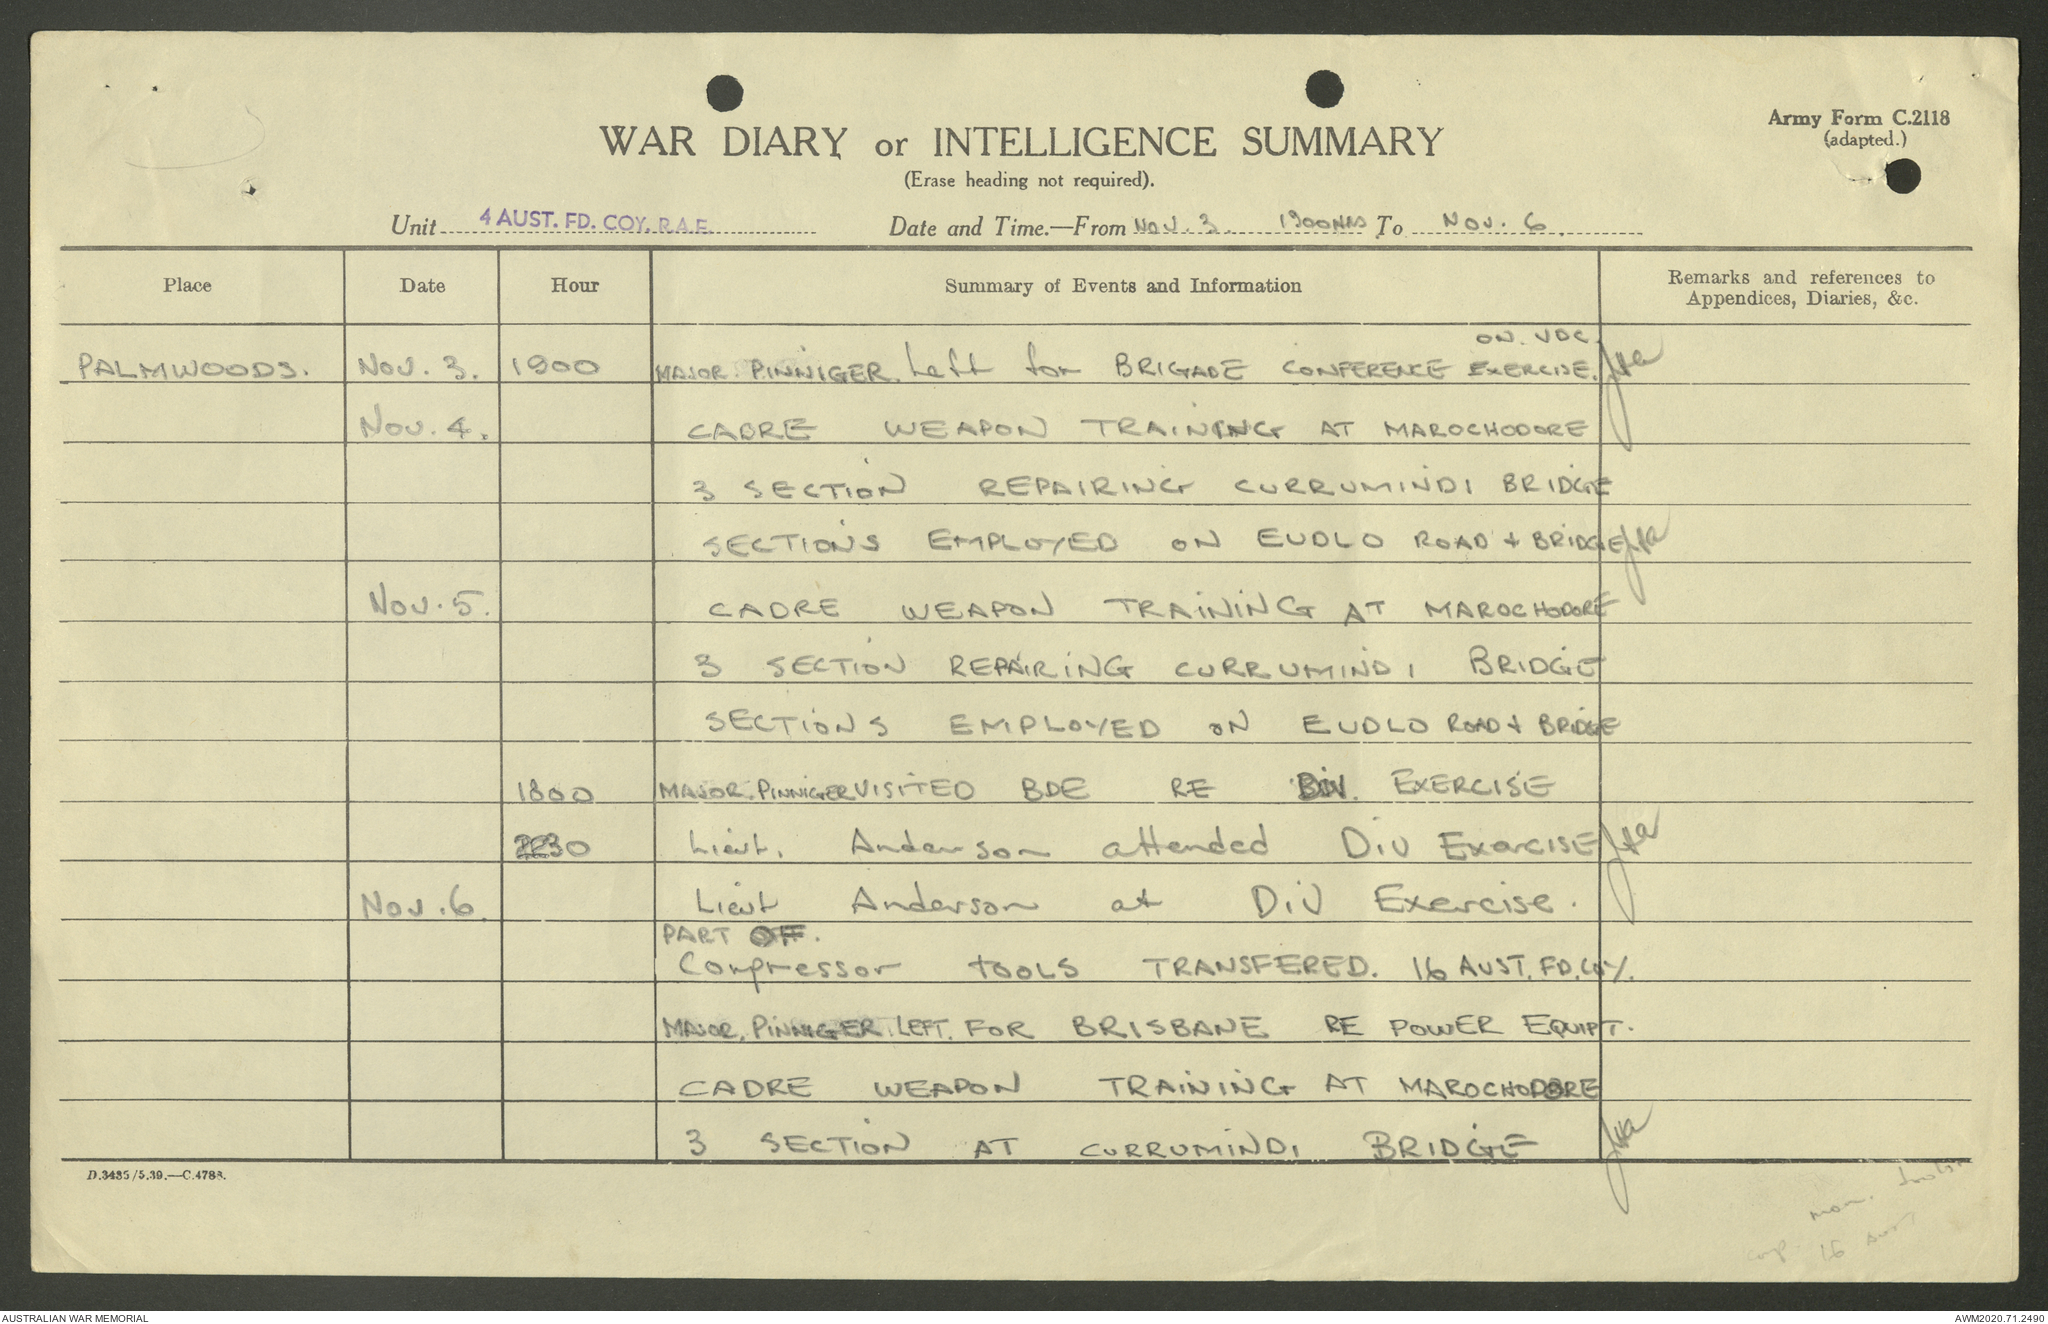 Army Form C.2118
(adapted.)
WAR DIARY or INTELLIGENCE SUMMARY
(Erase heading not required).
Unit 4 AUST. FD. COY. R.A.E. Date and Time.—From NOV. 3. 1900HRS To NOV. 6.
Place Date Hour Summary of Events and Information Remarks and references to Appendices, Diaries, &c.
ON. VDC.
PALMWOODS. NOV. 3. 1900 MAJOR. PINNIGER. Left for BRIGADE CONFERENCE EXERCISE.
NOV. 4. CADRE WEAPON TRAINING AT MAROCHODORE
3 SECTION REPAIRING CURRUMINDI BRIDGE
SECTIONS EMPLOYED ON EUDLO ROAD & BRIDGE
NOV. 5. CADRE WEAPON TRAINING AT MAROCHODORE
3 SECTION REPAIRING CURRUMINDI BRIDGE
SECTIONS EMPLOYED ON EUDLO ROAD & BRIDGE
1800 MAJOR. PINNIGER VISITED BDE RE DIV. EXERCISE
2230 Lieut. Anderson attended Div Exercise
NOV. 6. Lieut Anderson at Div Exercise.
PART OFF.
Compressor TOOLS TRANSFERED. 16 AUST. FD. COY.
MAJOR. PINNIGER. LEFT. FOR BRISBANE RE POWER EQUIPT.
CADRE WEAPON TRAINING AT MAROCHODORE
3 SECTION AT CURRUMINDI BRIDGE
D.3435/5.39.—C.4788.
16 Aust
AUSTRALIAN WAR MEMORIAL AWM2020.71.2490